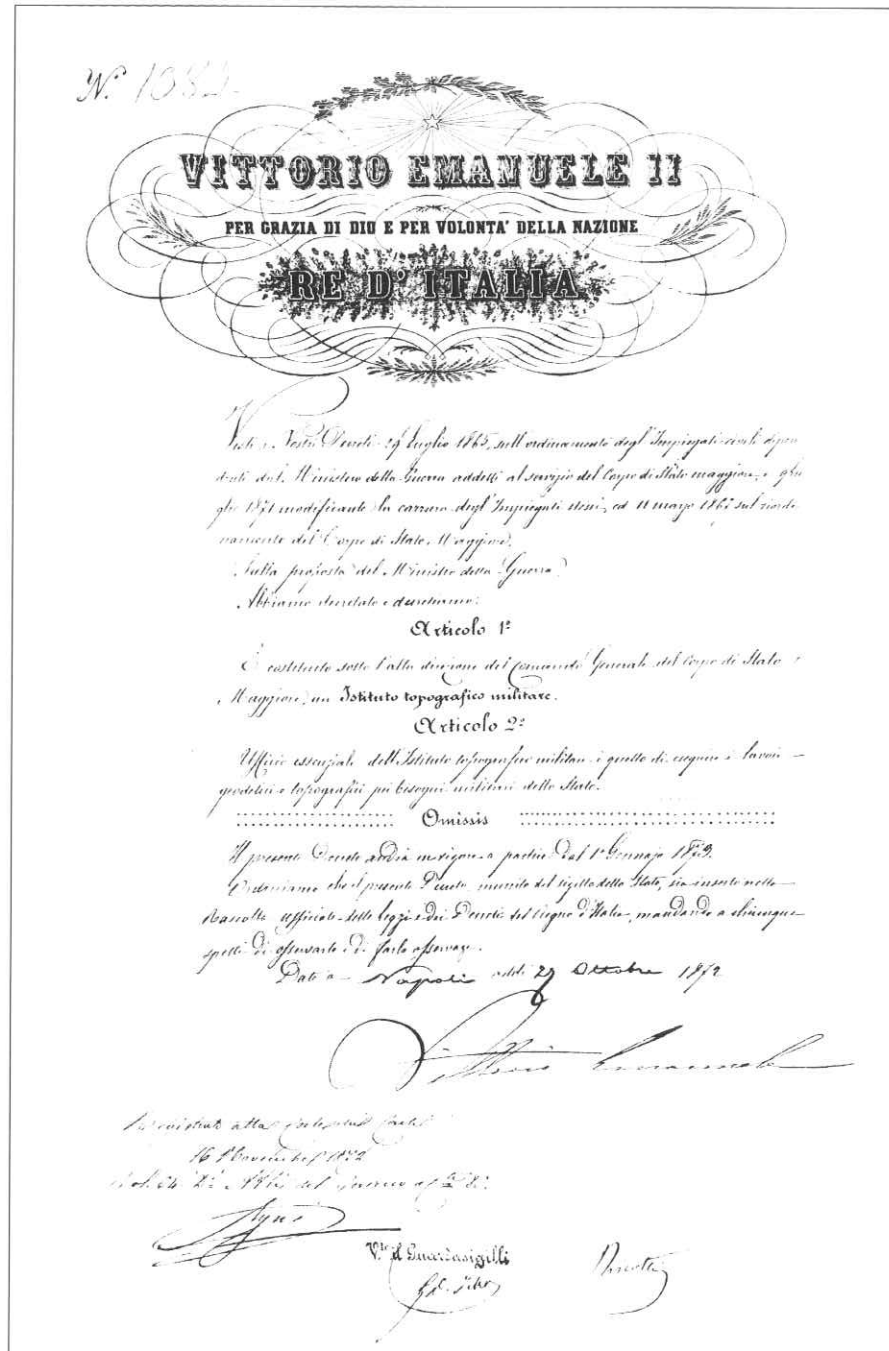 N.º 1082
VITTORIO EMANUELE II
PER GRAZIA DI DIO E PER VOLONTA' DELLA NAZIONE
RE D'ITALIA
Visti i Nostri Decreti 29 Luglio 1865, sull'ordinamento degl'Impiegati civili dipen
denti dal Ministero della Guerra addetti al servizio del Corpo di Stato maggiore,
glio 1871 modificante la carriera degl'Impiegati stessi, ed 11 marzo sul riordi
namento del Corpo di Stato Maggiore;
Sulla proposta del Ministro della Guerra;
Abbiamo decretato e decretiamo:
Articolo 1º
È costituito sotto l'alta direzione del Comando Generale del Corpo di Stato
Maggiore, un Istituto topografico militare.
Articolo 2º
Ufficio essenziale dell'Istituto topografico militare è quello di eseguire i lavori
geodetici e topografici pei bisogni militari dello Stato.
Omissis
Il presente Decreto andrà in vigore a partire dal 1º Gennajo 1873.
Ordiniamo che il presente Decreto, munito del sigillo dello Stato, sia inserto nella
Raccolta ufficiale delle leggi e dei Decreti del Regno d'Italia, mandando a chiunque
spetti di osservarlo e di farlo osservare.
Dato a Napoli addì 27 Ottobre 1872
Vittorio Emanuele
16 Novembre 1872
V.to il Guardasigilli
Ricotti